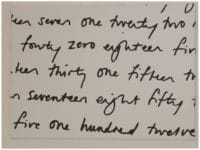 seven one twenty two
forty zero eighteen
thirty one fifteen
seventeen eight fifty
five one hundred twelve